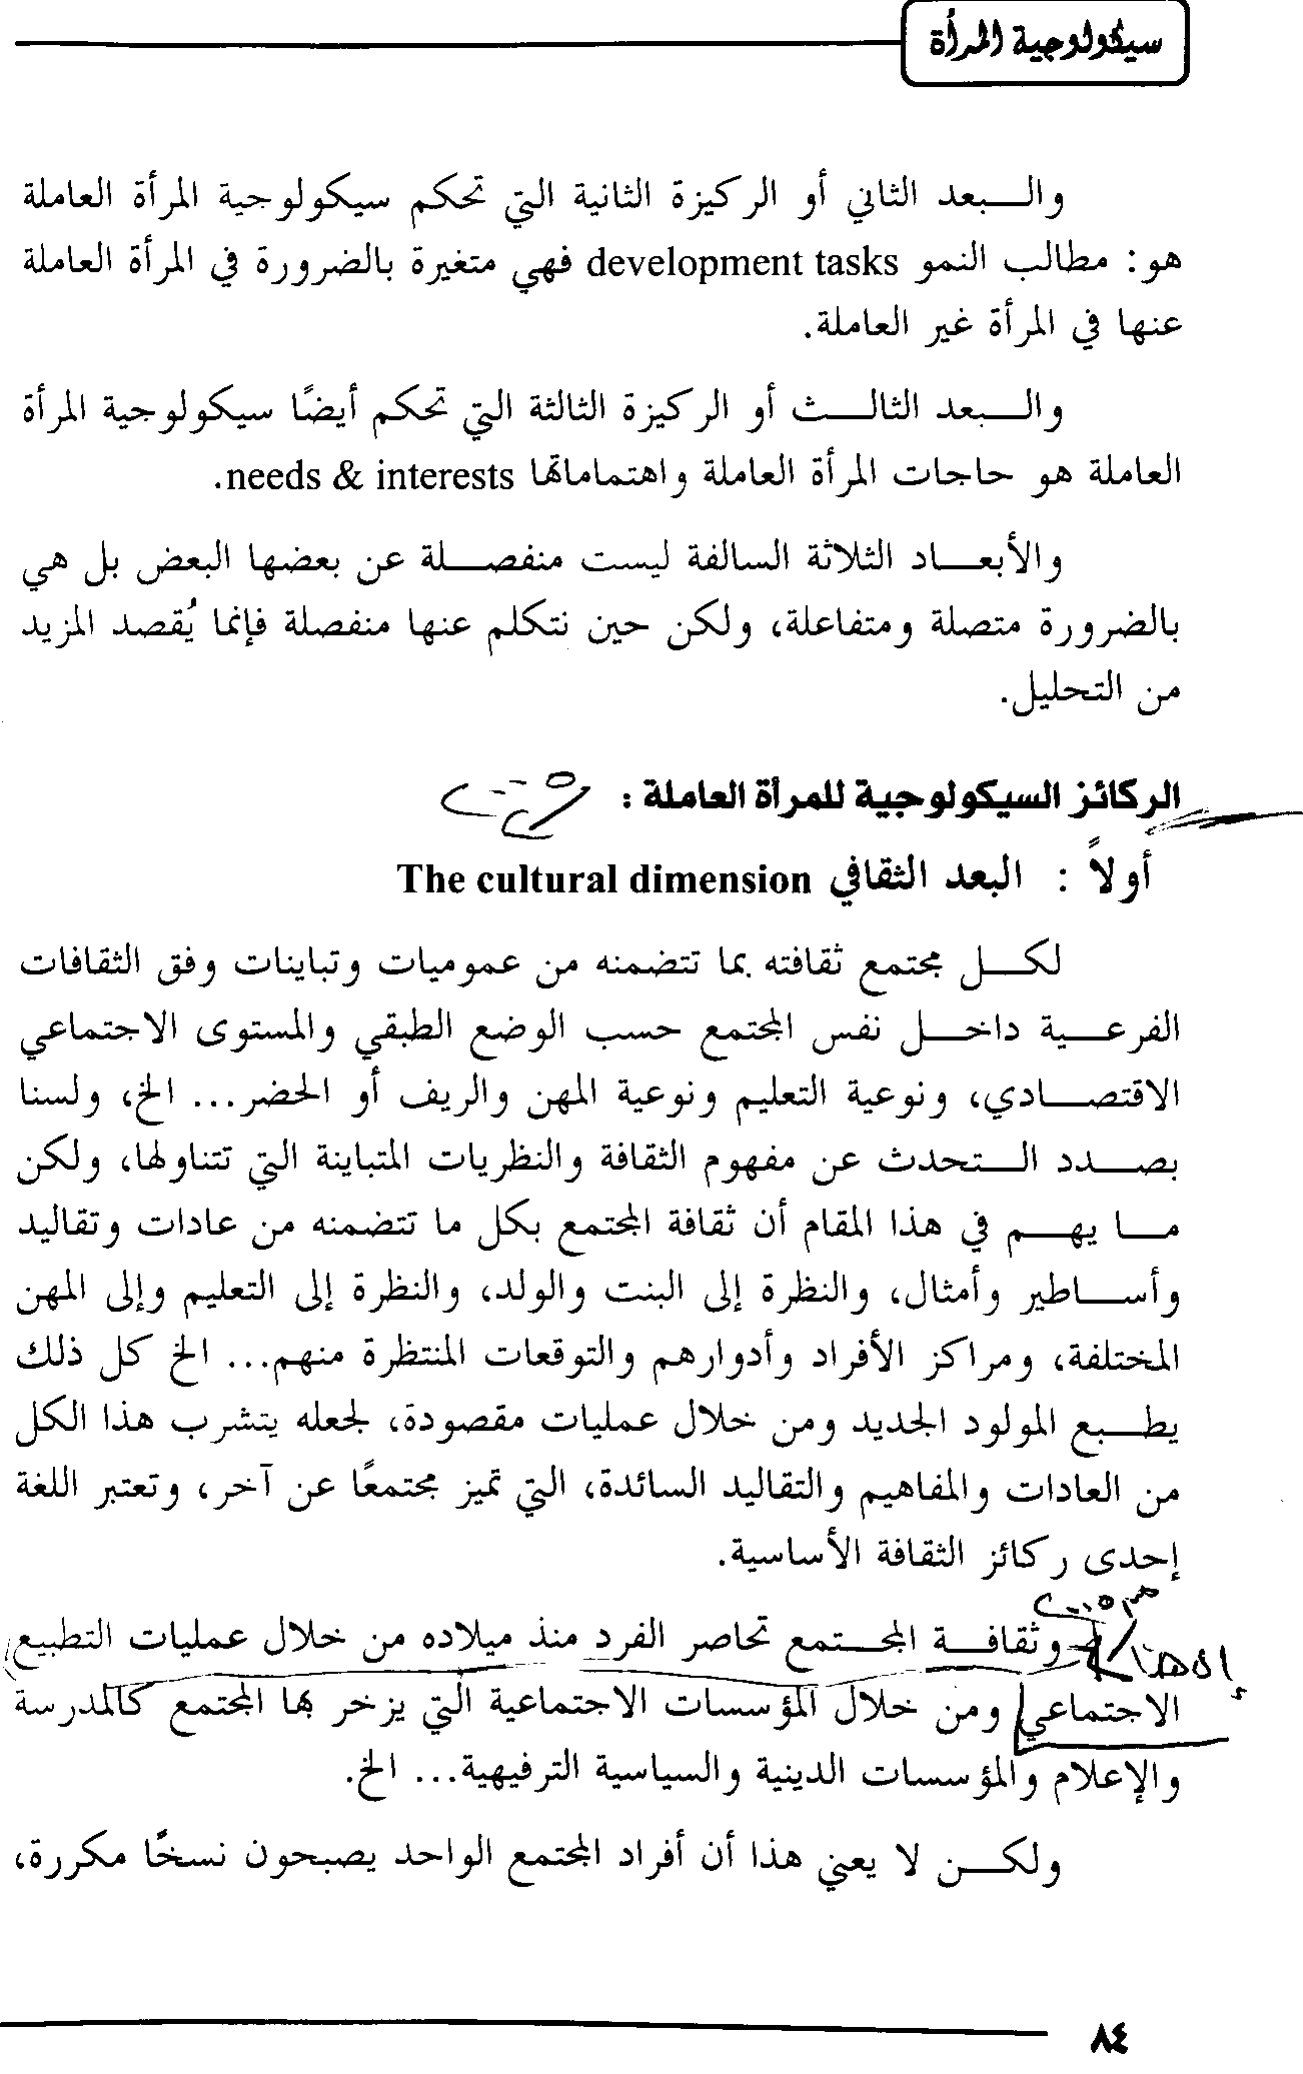 سيكولوجية المرأة
والبعد الثاني أو الركيزة الثانية التي تحكم سيكولوجية المرأة العاملة
هو: مطالب النمو development tasks فهي متغيرة بالضرورة في المرأة العاملة
عنها في المرأة غير العاملة.
والبعد الثالث أو الركيزة الثالثة التي تحكم أيضًا سيكولوجية المرأة
العاملة هو حاجات المرأة العاملة واهتماماتها needs & interests.
والأبعاد الثلاثة السالفة ليست منفصلة عن بعضها البعض بل هي
بالضرورة متصلة ومتفاعلة، ولكن حين نتكلم عنها منفصلة فإنما يُقصد المزيد
من التحليل.
الركائز السيكولوجية للمرأة العاملة :
أولاً : البعد الثقافي The cultural dimension
لكل مجتمع ثقافته بما تتضمنه من عموميات وتباينات وفق الثقافات
الفرعية داخل نفس المجتمع حسب الوضع الطبقي والمستوى الاجتماعي
الاقتصادي، ونوعية التعليم ونوعية المهن والريف أو الحضر... الخ، ولسنا
بصدد التحدث عن مفهوم الثقافة والنظريات المتباينة التي تتناولها، ولكن
ما يهم في هذا المقام أن ثقافة المجتمع بكل ما تتضمنه من عادات وتقاليد
وأساطير وأمثال، والنظرة إلى البنت والولد، والنظرة إلى التعليم وإلى المهن
المختلفة، ومراكز الأفراد وأدوارهم والتوقعات المنتظرة منهم... الخ كل ذلك
يطبع المولود الجديد ومن خلال عمليات مقصودة، لجعله يتشرب هذا الكل
من العادات والمفاهيم والتقاليد السائدة، التي تميز مجتمعًا عن آخر، وتعتبر اللغة
إحدى ركائز الثقافة الأساسية.
وثقافة المجتمع تحاصر الفرد منذ ميلاده من خلال عمليات التطبيع
الاجتماعي ومن خلال المؤسسات الاجتماعية التي يزخر بها المجتمع كالمدرسة
والإعلام والمؤسسات الدينية والسياسية الترفيهية... الخ.
ولكن لا يعني هذا أن أفراد المجتمع الواحد يصبحون نسخًا مكررة،
٨٤